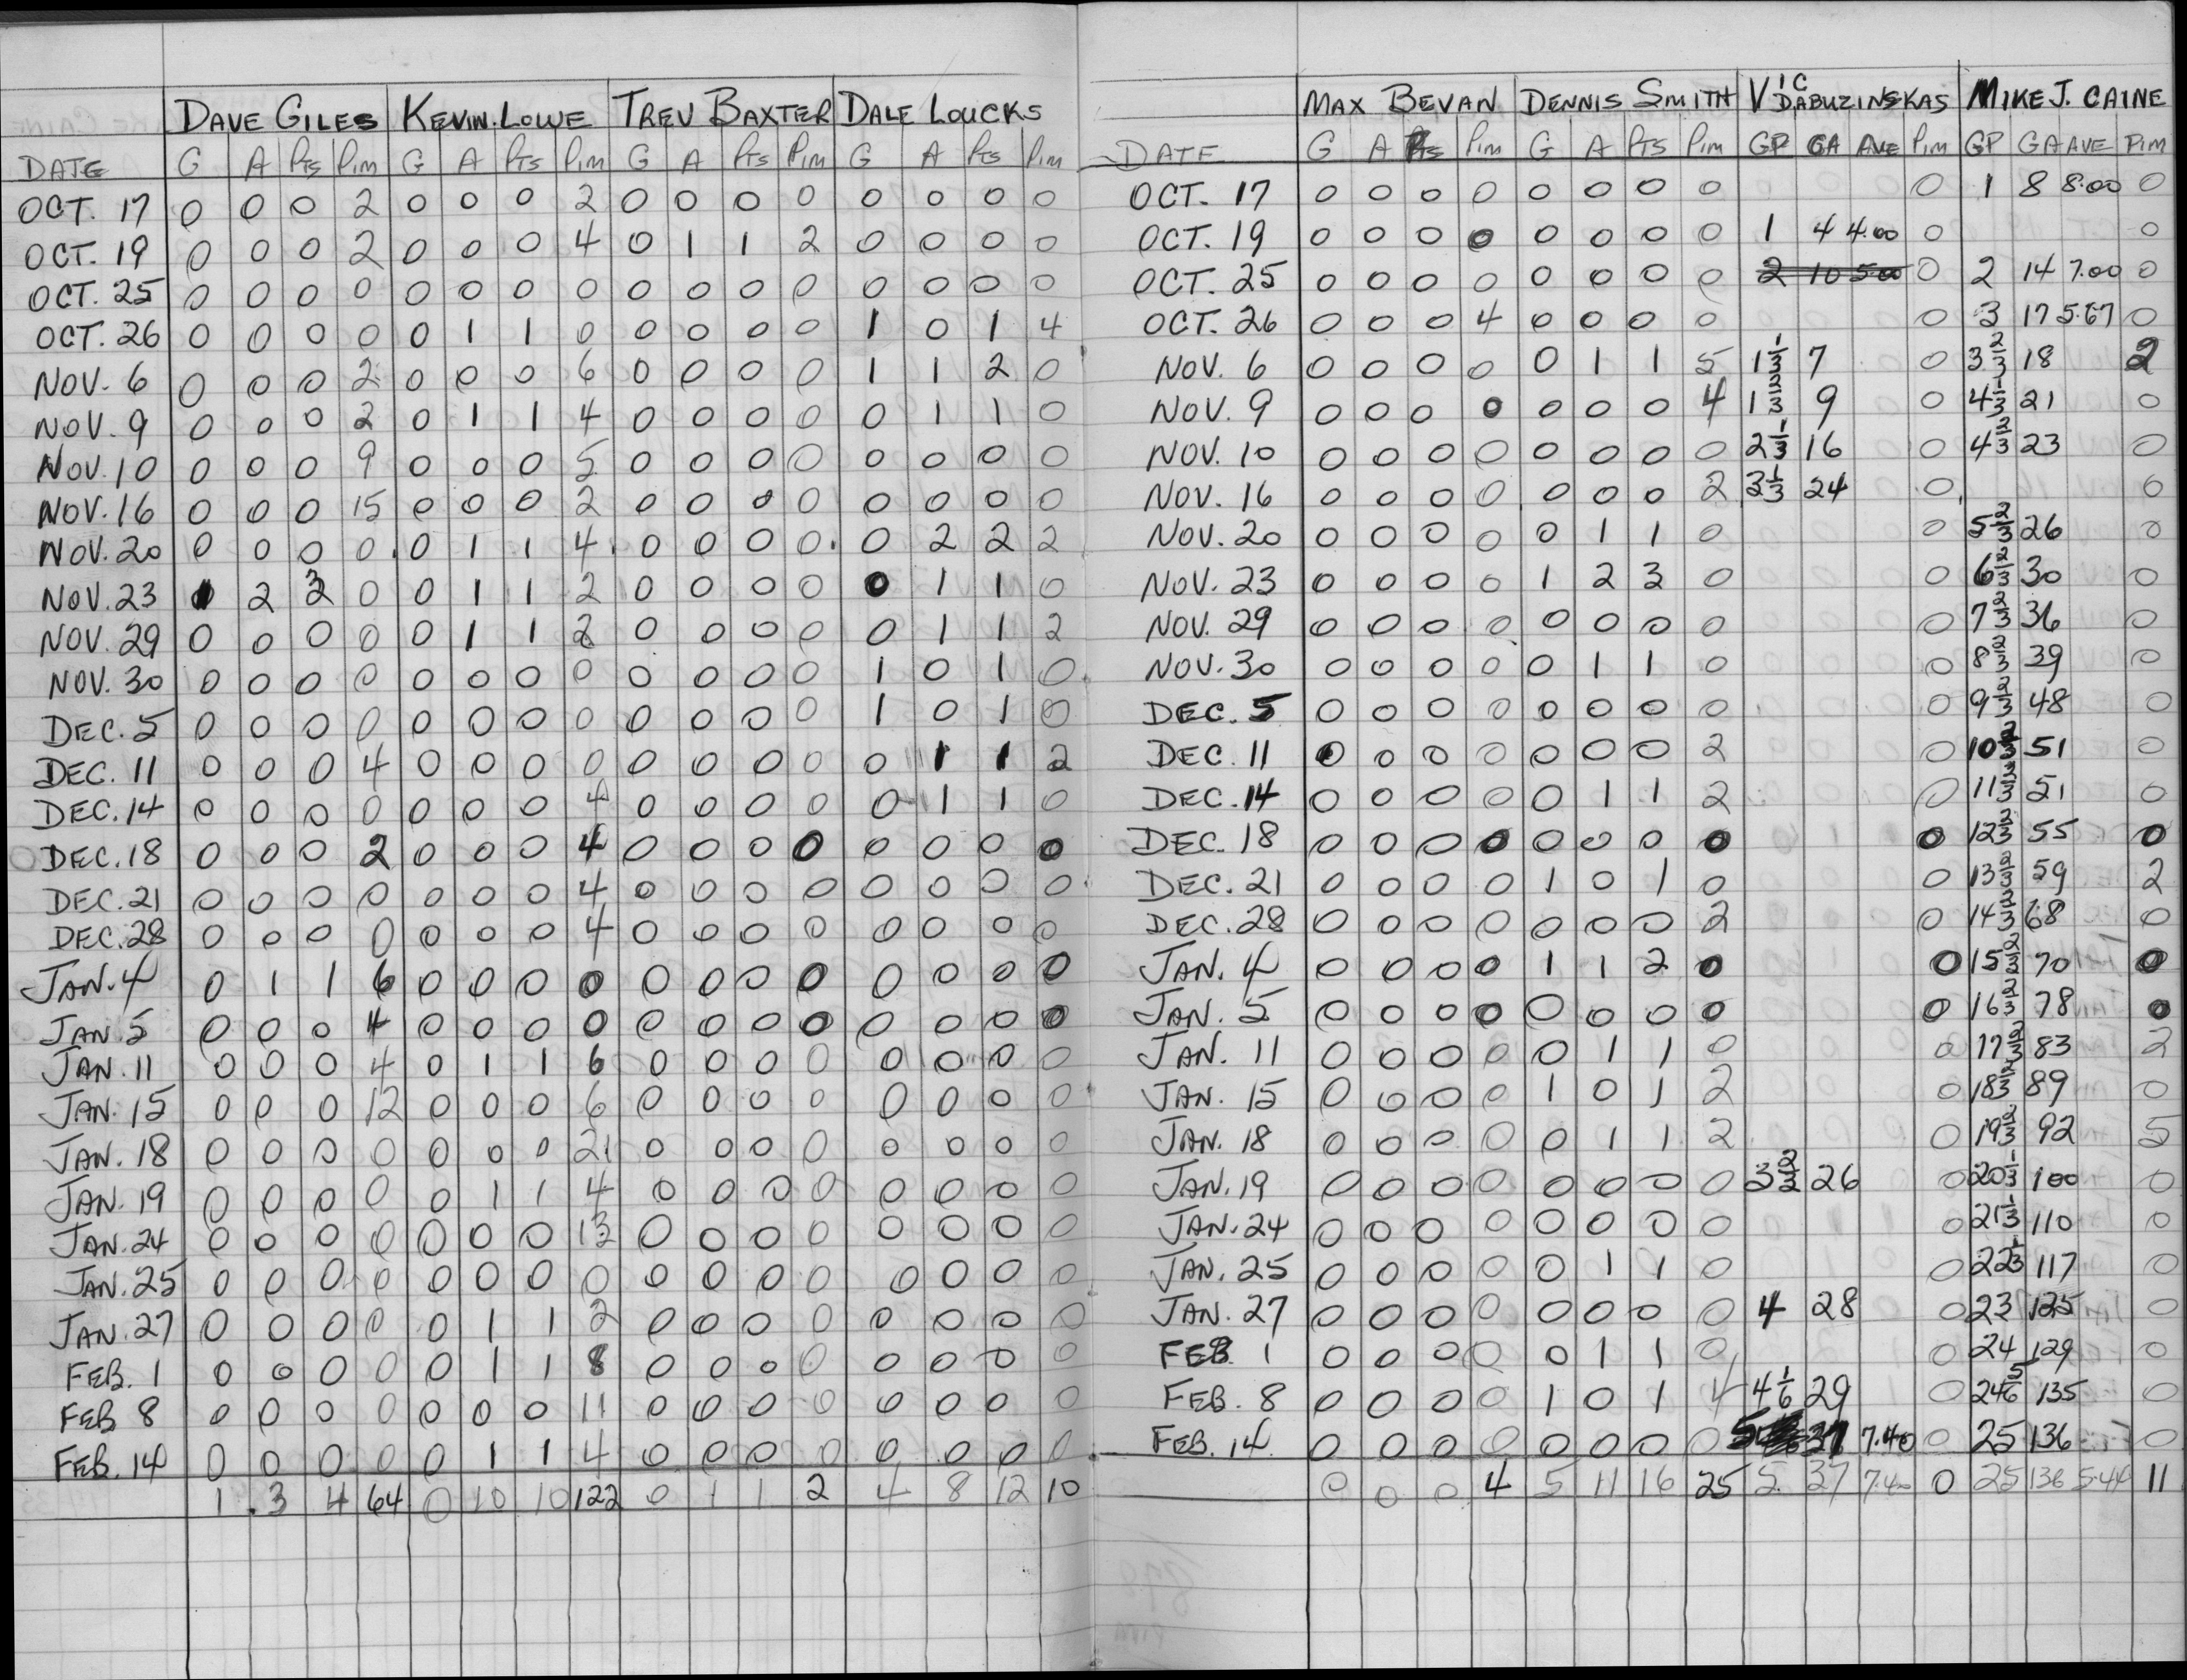 DAVE GILES KEVIN LOWE TREV BAXTER DALE LOUCKS
DATE G A PTS PIM G A PTS PIM G A PTS PIM G A PTS PIM
OCT. 17 0 0 0 2 0 0 0 2 0 0 0 0 0 0 0 0
OCT. 19 0 0 0 2 0 0 0 4 0 1 1 2 0 0 0 0
OCT. 25 0 0 0 0 0 0 0 0 0 0 0 0 0 0 0 0
OCT. 26 0 0 0 0 0 1 1 0 0 0 0 0 1 0 1 4
NOV. 6 0 0 0 2 0 0 0 6 0 0 0 0 1 1 2 0
NOV. 9 0 0 0 2 0 1 1 4 0 0 0 0 0 1 1 0
NOV. 10 0 0 0 9 0 0 0 5 0 0 0 0 0 0 0 0
NOV. 16 0 0 0 15 0 0 0 2 0 0 0 0 0 0 0 0
NOV. 20 0 0 0 0 0 1 1 4 0 0 0 0 0 2 2 2
NOV. 23 1 2 3 0 0 1 1 2 0 0 0 0 0 1 1 0
NOV. 29 0 0 0 0 0 1 1 2 0 0 0 0 0 1 1 2
NOV. 30 0 0 0 0 0 0 0 0 0 0 0 0 1 0 1 0
DEC. 5 0 0 0 0 0 0 0 0 0 0 0 0 1 0 1 0
DEC. 11 0 0 0 4 0 0 0 0 0 0 0 0 0 1 1 2
DEC. 14 0 0 0 0 0 0 0 4 0 0 0 0 0 1 1 0
DEC. 18 0 0 0 2 0 0 0 4 0 0 0 0 0 0 0 0
DEC. 21 0 0 0 0 0 0 0 4 0 0 0 0 0 0 0 0
DEC. 28 0 0 0 0 0 0 0 4 0 0 0 0 0 0 0 0
JAN. 4 0 1 1 6 0 0 0 0 0 0 0 0 0 0 0 0
JAN. 5 0 0 0 4 0 0 0 0 0 0 0 0 0 0 0 0
JAN. 11 0 0 0 4 0 1 1 6 0 0 0 0 0 0 0 0
JAN. 15 0 0 0 12 0 0 0 6 0 0 0 0 0 0 0 0
JAN. 18 0 0 0 0 0 0 0 21 0 0 0 0 0 0 0 0
JAN. 19 0 0 0 0 0 1 1 4 0 0 0 0 0 0 0 0
JAN. 24 0 0 0 0 0 0 0 13 0 0 0 0 0 0 0 0
JAN. 25 0 0 0 0 0 0 0 0 0 0 0 0 0 0 0 0
JAN. 27 0 0 0 0 0 1 1 2 0 0 0 0 0 0 0 0
FEB. 1 0 0 0 0 0 1 1 8 0 0 0 0 0 0 0 0
FEB 8 0 0 0 0 0 0 0 11 0 0 0 0 0 0 0 0
FEB. 14 0 0 0 0 0 1 1 4 0 0 0 0 0 0 0 0
1 3 4 64 0 10 10 122 0 1 1 2 4 8 12 10
MAX BEVAN DENNIS SMITH VIC DABUZINSKAS MIKE J. CAINE
DATE G A PTS PIM G A PTS PIM GP GA AVE PIM GP GA AVE PIM
OCT. 17 0 0 0 0 0 0 0 0 0 1 8 8.00 0
OCT. 19 0 0 0 0 0 0 0 0 1 4 4.00 0 0
OCT. 25 0 0 0 0 0 0 0 0 2 10 5.00 0 2 14 7.00 0
OCT. 26 0 0 0 4 0 0 0 0 0 3 17 5.67 0
NOV. 6 0 0 0 0 0 1 1 5 1 1/3 7 0 3 2/3 18 2
NOV. 9 0 0 0 0 0 0 0 4 1 2/3 9 0 4 1/3 21 0
NOV. 10 0 0 0 0 0 0 0 0 2 1/3 16 0 4 2/3 23 0
NOV. 16 0 0 0 0 0 0 0 2 3 1/3 24 0 0
NOV. 20 0 0 0 0 0 1 1 0 0 5 2/3 26 0
NOV. 23 0 0 0 0 1 2 3 0 0 6 2/3 30 0
NOV. 29 0 0 0 0 0 0 0 0 0 7 2/3 36 0
NOV. 30 0 0 0 0 0 1 1 0 0 8 2/3 39 0
DEC. 5 0 0 0 0 0 0 0 0 0 9 2/3 48 0
DEC. 11 0 0 0 0 0 0 0 2 0 10 2/3 51 0
DEC. 14 0 0 0 0 0 1 1 2 0 11 2/3 51 0
DEC. 18 0 0 0 0 0 0 0 0 0 12 2/3 55 0
DEC. 21 0 0 0 0 1 0 1 0 0 13 2/3 59 2
DEC. 28 0 0 0 0 0 0 0 2 0 14 2/3 68 0
JAN. 4 0 0 0 0 1 1 2 0 0 15 2/3 70 0
JAN. 5 0 0 0 0 0 0 0 0 0 16 2/3 78 0
JAN. 11 0 0 0 0 0 1 1 0 0 17 2/3 83 2
JAN. 15 0 0 0 0 1 0 1 2 0 18 2/3 89 0
JAN. 18 0 0 0 0 0 1 1 2 0 19 2/3 92 5
JAN. 19 0 0 0 0 0 0 0 0 3 2/3 26 0 20 1/3 100 0
JAN. 24 0 0 0 0 0 0 0 0 0 21 1/3 110 0
JAN. 25 0 0 0 0 0 1 1 0 0 22 1/3 117 0
JAN. 27 0 0 0 0 0 0 0 0 4 28 0 23 125 0
FEB. 1 0 0 0 0 0 1 1 0 0 24 129 0
FEB. 8 0 0 0 0 1 0 1 4 4 1/6 29 0 24 5/6 135 0
FEB. 14 0 0 0 0 0 0 0 0 5 37 7.40 0 25 136 0
0 0 0 4 5 11 16 25 5 37 7.40 0 25 136 5.44 11